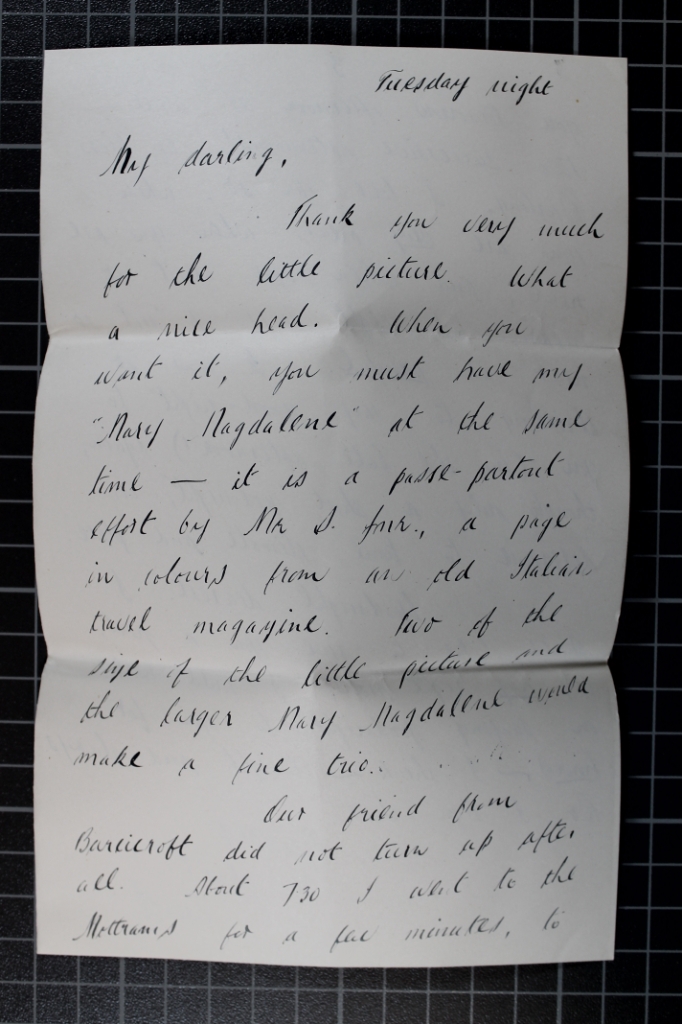 Tuesday night
My darling,
Thank you very much
for the little picture. What
a nice head. When you
want it, you must have my
"Mary Magdalene" at the same
time — it is a passe-partout
effort by Mr S. , a page
in colours from an old Italian
travel magazine. Two of the
size of the little picture and
the larger Mary Magdalene would
make a fine trio.
Our friend from
Barcicroft did not turn up after
all. About 730 I went to the
Mottrams for a few minutes, to